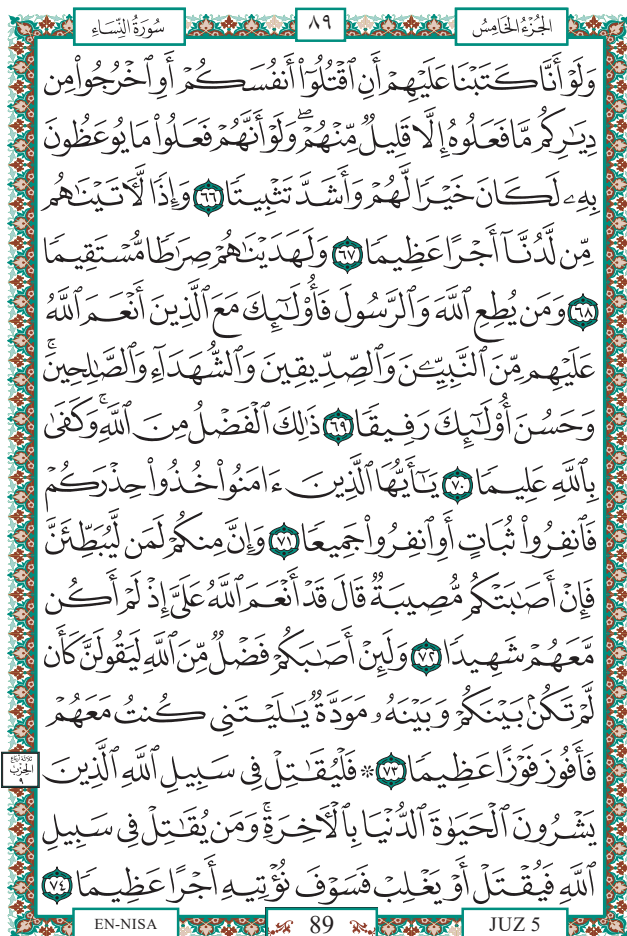 الجُزْءُ الخَامِسُ ٨٩ سُورَةُ النِّسَاءِ
وَلَوْ أَنَّا كَتَبْنَا عَلَيْهِمْ أَنِ ٱقْتُلُوٓا۟ أَنفُسَكُمْ أَوِ ٱخْرُجُوا۟ مِن
دِيَـٰرِكُم مَّا فَعَلُوهُ إِلَّا قَلِيلٌ مِّنْهُمْ ۖ وَلَوْ أَنَّهُمْ فَعَلُوا۟ مَا يُوعَظُونَ
بِهِۦ لَكَانَ خَيْرًا لَّهُمْ وَأَشَدَّ تَثْبِيتًا ٦٦ وَإِذًا لَّـَٔاتَيْنَـٰهُم
مِّن لَّدُنَّآ أَجْرًا عَظِيمًا ٦٧ وَلَهَدَيْنَـٰهُمْ صِرَٰطًا مُّسْتَقِيمًا
٦٨ وَمَن يُطِعِ ٱللَّهَ وَٱلرَّسُولَ فَأُو۟لَـٰٓئِكَ مَعَ ٱلَّذِينَ أَنْعَمَ ٱللَّهُ
عَلَيْهِم مِّنَ ٱلنَّبِيِّـۧنَ وَٱلصِّدِّيقِينَ وَٱلشُّهَدَآءِ وَٱلصَّـٰلِحِينَ ۚ
وَحَسُنَ أُو۟لَـٰٓئِكَ رَفِيقًا ٦٩ ذَٰلِكَ ٱلْفَضْلُ مِنَ ٱللَّهِ ۚ وَكَفَىٰ
بِٱللَّهِ عَلِيمًا ٧٠ يَـٰٓأَيُّهَا ٱلَّذِينَ ءَامَنُوا۟ خُذُوا۟ حِذْرَكُمْ
فَٱنفِرُوا۟ ثُبَاتٍ أَوِ ٱنفِرُوا۟ جَمِيعًا ٧١ وَإِنَّ مِنكُمْ لَمَن لَّيُبَطِّئَنَّ
فَإِنْ أَصَـٰبَتْكُم مُّصِيبَةٌ قَالَ قَدْ أَنْعَمَ ٱللَّهُ عَلَىَّ إِذْ لَمْ أَكُن
مَّعَهُمْ شَهِيدًا ٧٢ وَلَئِنْ أَصَـٰبَكُمْ فَضْلٌ مِّنَ ٱللَّهِ لَيَقُولَنَّ كَأَن
لَّمْ تَكُنۢ بَيْنَكُمْ وَبَيْنَهُۥ مَوَدَّةٌ يَـٰلَيْتَنِى كُنتُ مَعَهُمْ
فَأَفُوزَ فَوْزًا عَظِيمًا ٧٣ ۞ فَلْيُقَـٰتِلْ فِى سَبِيلِ ٱللَّهِ ٱلَّذِينَ
ثلاثة أرباع
الحزب
٩
يَشْرُونَ ٱلْحَيَوٰةَ ٱلدُّنْيَا بِٱلْـَٔاخِرَةِ ۚ وَمَن يُقَـٰتِلْ فِى سَبِيلِ
ٱللَّهِ فَيُقْتَلْ أَوْ يَغْلِبْ فَسَوْفَ نُؤْتِيهِ أَجْرًا عَظِيمًا ٧٤
EN-NISA 89 JUZ 5